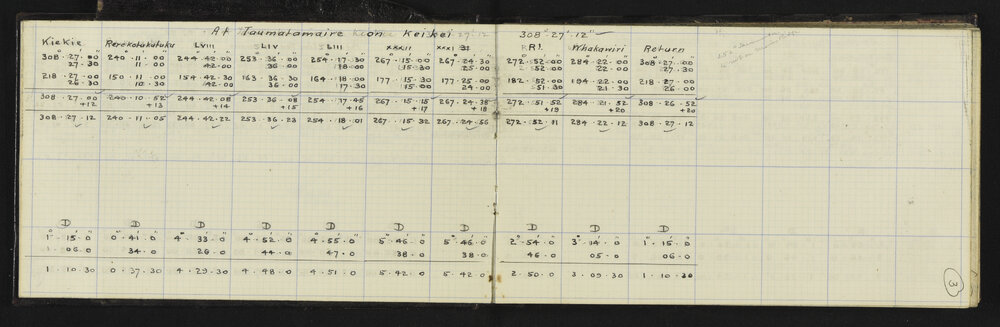 At Taumatamaire on Keikei 308° 27' 12"
KieKie Rerekotakutuku LVIII SLIV SLIII XXXII XXXI 31 R1. Whakamiri Return
308 · 27 · 00 240 · 11 · 00 244 · 42 · 00 253 · 36 · 00 254 · 17 · 30 267 · 15 · 00 267 · 24 · 30 272 · 52 · 00 284 · 22 · 00 308 · 27 · 00
27 · 30 11 · 00 42 · 00 36 · 00 18 · 00 15 · 30 25 · 00 52 · 00 22 · 00 27 · 30
218 · 27 · 00 150 · 11 · 00 154 · 42 · 30 163 · 36 · 30 164 · 18 · 00 177 · 15 · 30 177 · 25 · 00 182 · 52 · 00 194 · 22 · 00 218 · 27 · 00
26 · 30 10 · 30 42 · 00 36 · 00 17 · 30 15 · 00 24 · 00 51 · 30 21 · 30 26 · 00
308 · 27 · 00 240 · 10 · 52 244 · 42 · 08 253 · 36 · 08 254 · 17 · 45 267 · 15 · 15 267 · 24 · 38 272 · 51 · 52 284 · 21 · 52 308 · 26 · 52
+12 +13 +14 +15 +16 +17 +18 +19 +20 +20
308 · 27 · 12 240 · 11 · 05 244 · 42 · 22 253 · 36 · 23 254 · 18 · 01 267 · 15 · 32 267 · 24 · 56 272 · 52 · 11 284 · 22 · 12 308 · 27 · 12
D D D D D D D D D D
1° · 15' · 0" 0 · 41 · 0 4 · 33 · 0 4 · 52 · 0 4 · 55 · 0 5 · 46 · 0 5 · 46 · 0 2 · 54 · 0 3 · 14 · 0 1 · 15 · 0
1 · 06 · 0 34 · 0 26 · 0 44 · 0 47 · 0 38 · 0 38 · 0 46 · 0 05 · 0 06 · 0
1 · 10 · 30 0 · 37 · 30 4 · 29 · 30 4 · 48 · 0 4 · 51 · 0 5 · 42 · 0 5 · 42 · 0 2 · 50 · 0 3 · 09 · 30 1 · 10 · 30
3